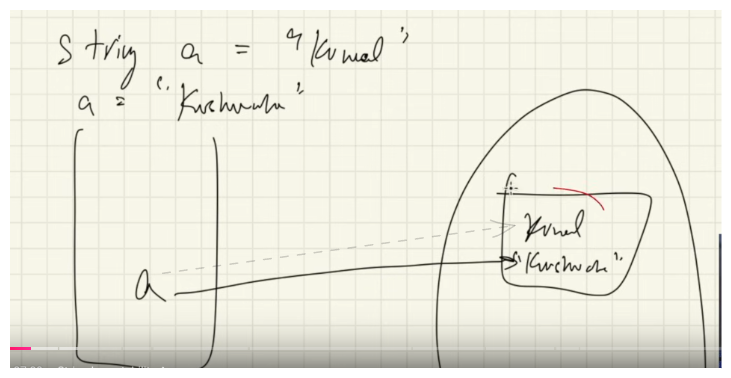 String a = "Kunal"
a = "Kushwaha"
Kunal
a "Kushwaha"